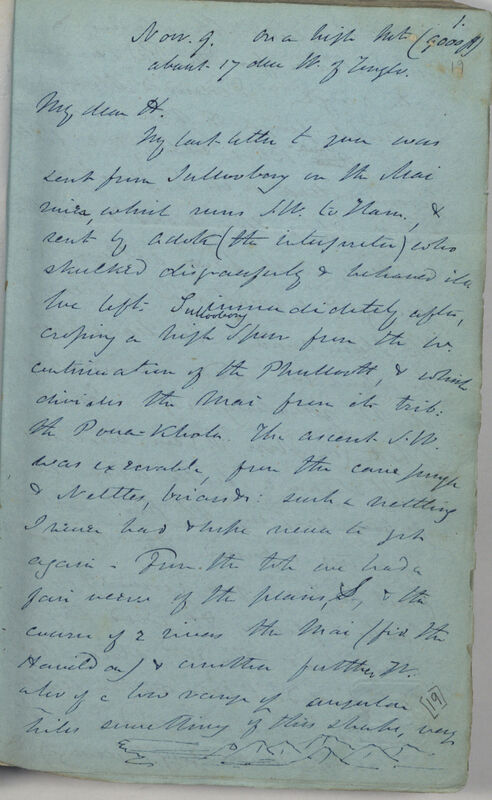 1.
Nov. 9. on a high hill (9000 ft)
19
about 17 due W. of Tonglo.
My dear H.
My last letter to you was
sent from Sulloobong on the Mai
river, which runs S.W. to Ilam, &
sent by (the interpreter) who
skulked disgracefully & behaved ill
We left Sulloobong immediately after,
crossing a high Spur from the W.
continuation of the Phulloot, & which
divides the Mai from its trib:
the Poua-Khola. The ascent S.W.
was execrable, from the cane jungle
& Nettles, such a nettling
I never had & hope never to get
again - From the top we had a
fair view of the plains, S, & the
course of 2 rivers the Mai (fide the
) & another further W.
also of a low range of
[19]
hills something of this shape, very